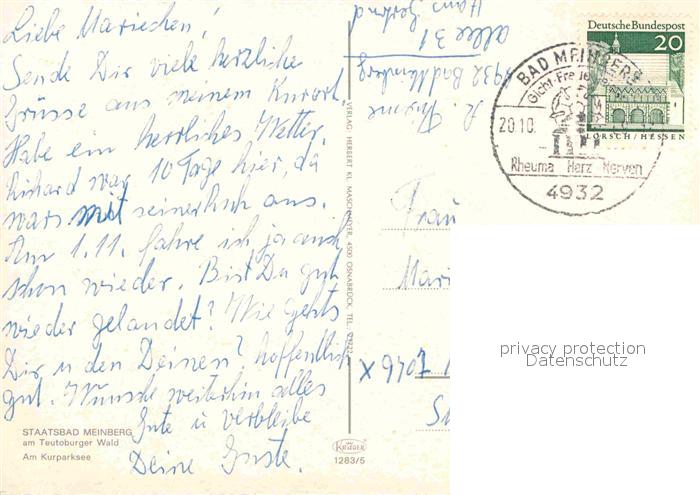 Liebe Mariechen!
Sende Dir viele herzliche
Grüsse aus meinem Kurort.
Habe ein herrliches Wetter.
Richard war 10 Tage hier, da
wars mit seinerlich aus.
Am 1.11. fahre ich ja auch
schon wieder. Bist Du gut
wieder gelandet? Wie gehts
Dir u den Deinen? hoffentlich
gut. Wünsche weiterhin alles
Gute u verbleibe
Deine Guste.
STAATSBAD MEINBERG
am Teutoburger Wald
Am Kurparksee
VERLAG HERBERT KL. MASCHMEYER, 4500 OSNABRÜCK, TEL.
Krüger
1283/5
allee 31
4932 Bad Meinberg
Frau
Mari
X 9407
Deutsche Bundespost
20
LORSCH / HESSEN
BAD MEINBERG
20.10.
Rheuma Herz Nerven
4932
privacy protection
Datenschutz